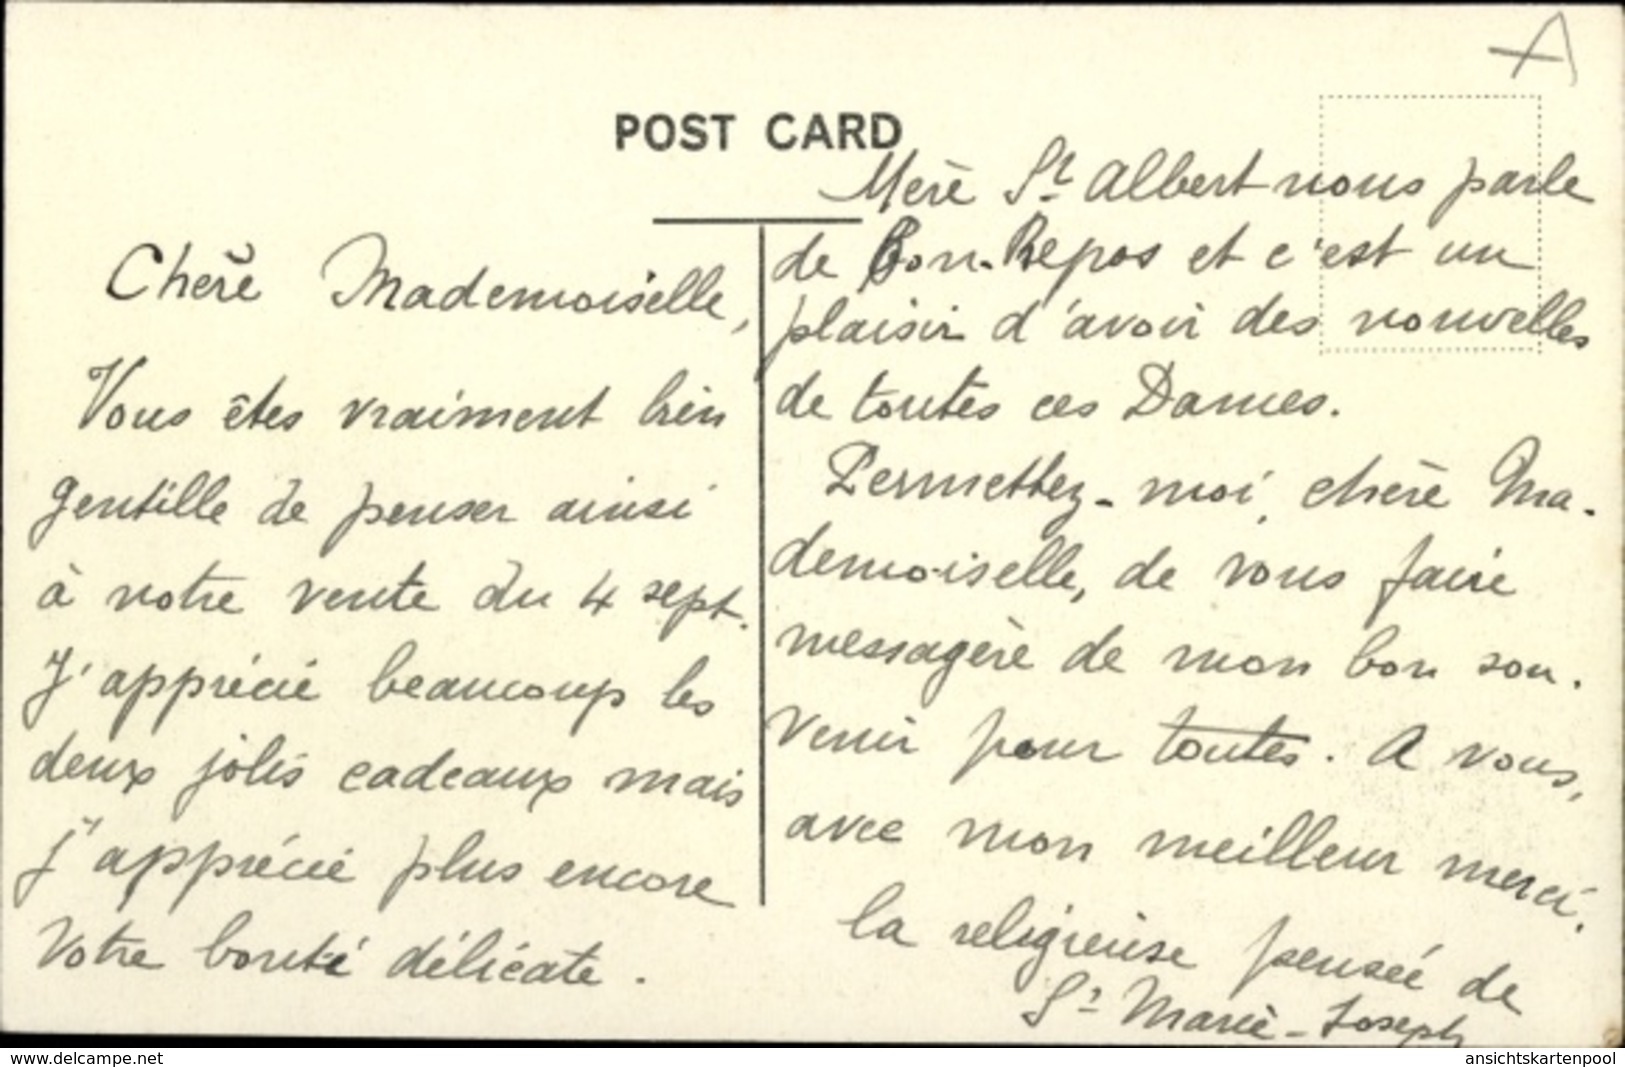 POST CARD
Chère Mademoiselle,
Vous êtes vraiment bien
gentille de penser ainsi
à notre vente du 4 sept.
J'apprécie beaucoup les
deux jolis cadeaux mais
j'apprécie plus encore
votre bonté délicate.
Mère St Albert nous parle
de Bon-Repos et c'est un
plaisir d'avoir des nouvelles
de toutes ces Dames.
Permettez-moi, chère Ma-
demoiselle, de vous faire
messagère de mon bon sou-
venir pour toutes. A vous,
avec mon meilleur merci,
la religieuse pensée de
Sr Marie-Joseph
www.delcampe.net
ansichtskartenpool